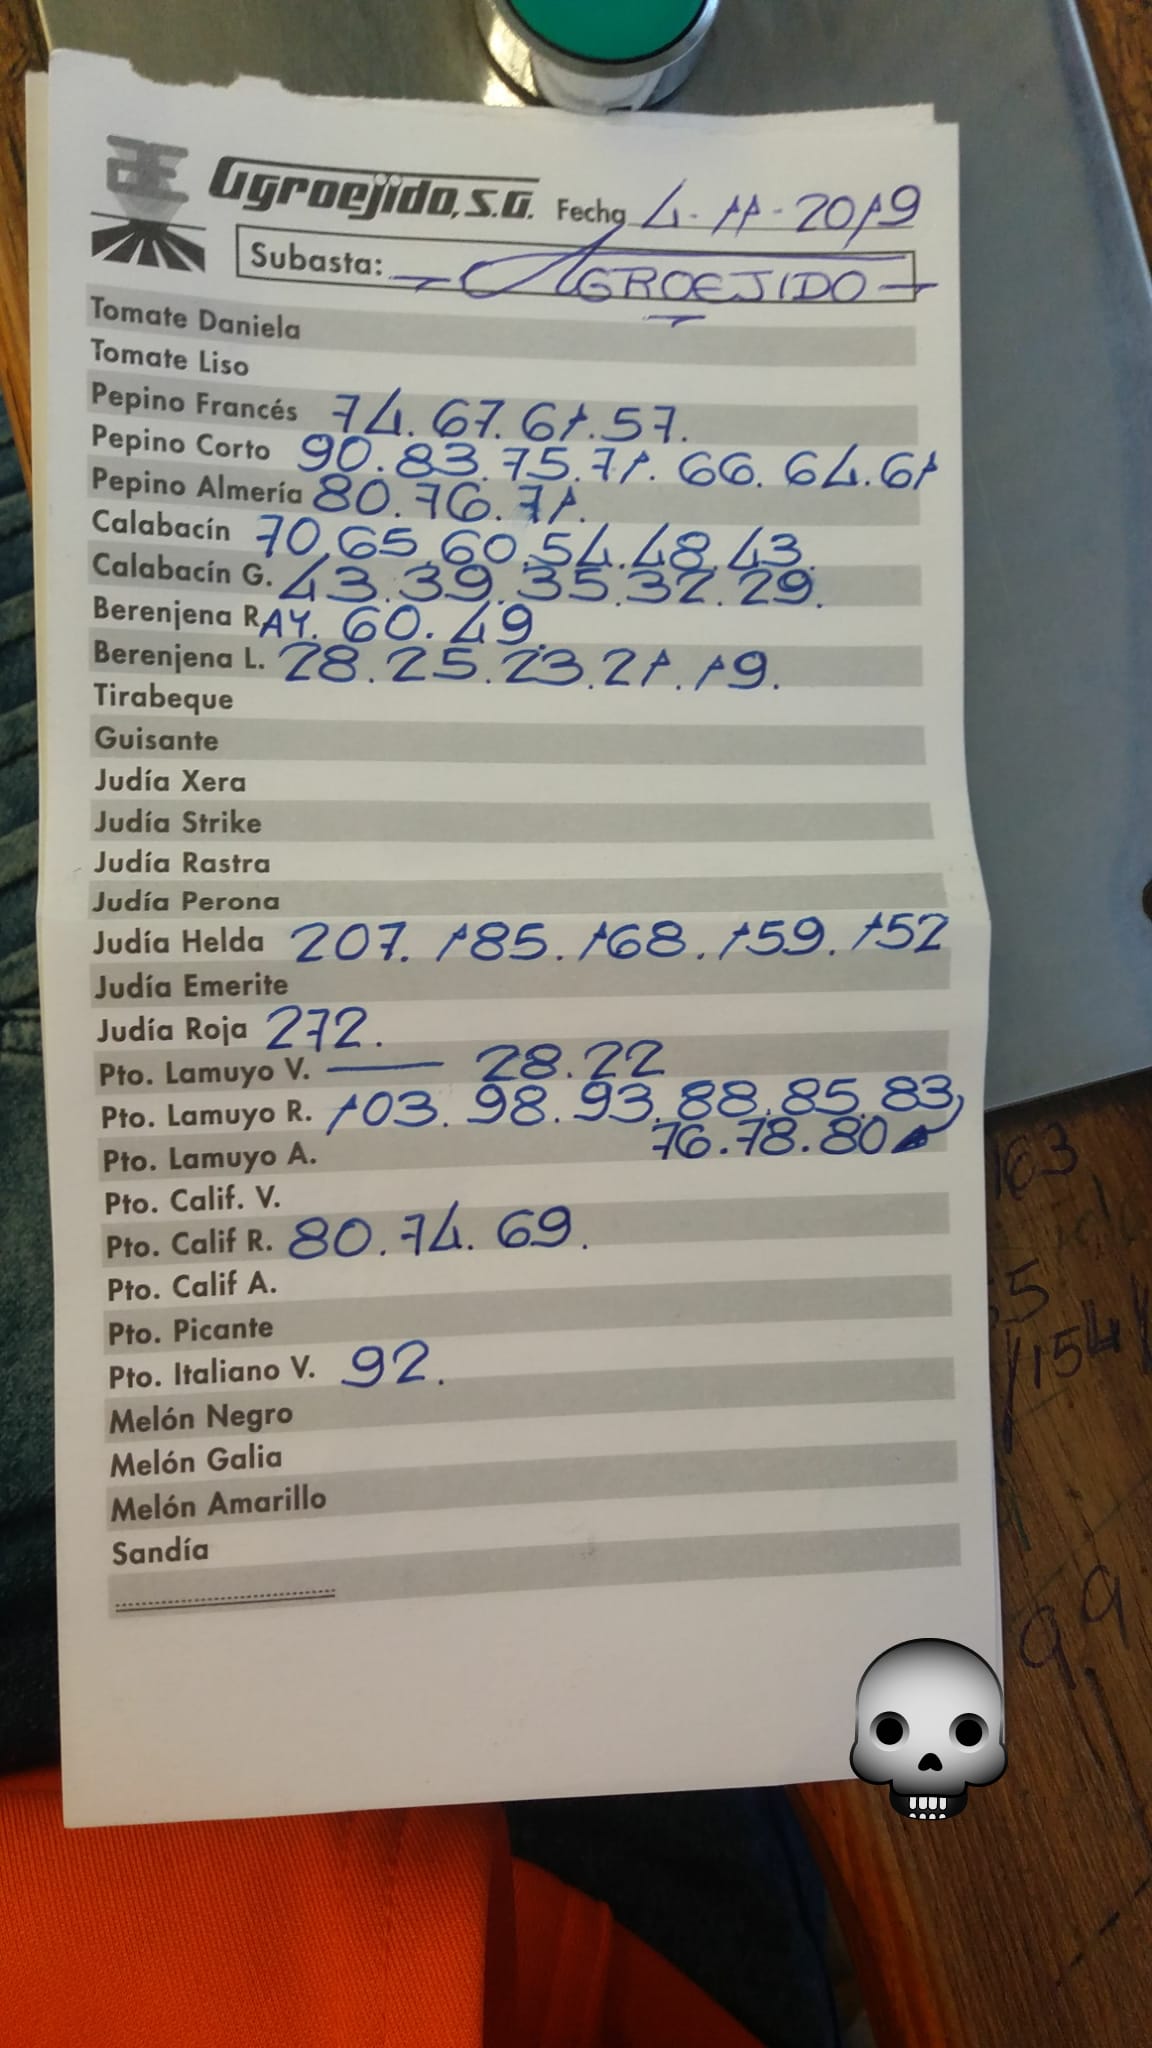 Agroejido, S.A. Fecha 4-11-2019
Subasta: AGROEJIDO
Tomate Daniela
Tomate Liso
Pepino Francés 74. 67. 61. 57.
Pepino Corto 90. 83. 75. 71. 66. 64. 61
Pepino Almería 80. 76. 71.
Calabacín 70. 65. 60. 54. 48. 43.
Calabacín G. 43. 39. 35. 32. 29.
Berenjena RAY. 60. 49.
Berenjena L. 28. 25. 23. 21. 19.
Tirabeque
Guisante
Judía Xera
Judía Strike
Judía Rastra
Judía Perona
Judía Helda 207. 185. 168. 159. 152
Judía Emerite
Judía Roja 272.
Pto. Lamuyo V. — 28. 22
Pto. Lamuyo R. 103. 98. 93. 88. 85. 83
76. 78. 80
Pto. Lamuyo A.
Pto. Calif. V.
Pto. Calif R. 80. 74. 69.
Pto. Calif A.
Pto. Picante
Pto. Italiano V. 92.
Melón Negro
Melón Galia
Melón Amarillo
Sandía
163
154